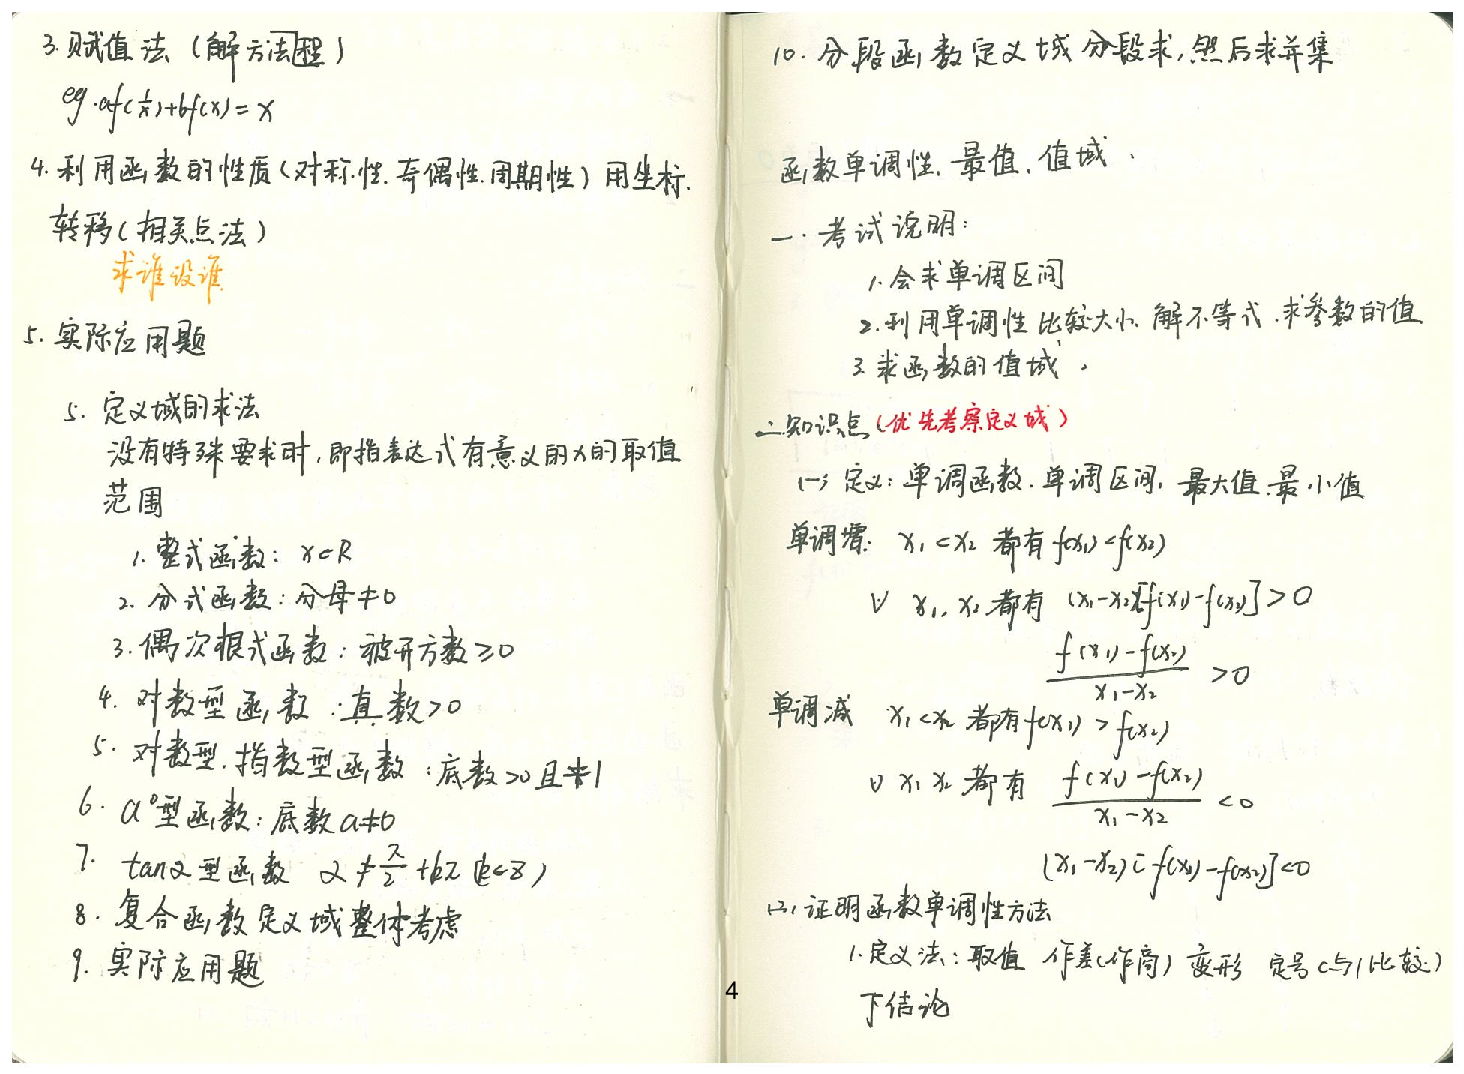 3. 赋值法（解方法程）
eg. af(1/x)+bf(x)=x
4. 利用函数的性质(对称性.奇偶性.周期性) 用坐标.
转移(相关点法)
求谁设谁
5. 实际应用题
5. 定义域的求法
没有特殊要求时,即指表达式有意义的x的取值
范围
1. 整式函数: x∈R
2. 分式函数: 分母≠0
3. 偶次根式函数: 被开方数≥0
4. 对数型函数: 真数>0
5. 对数型.指数型函数: 底数>0且≠1
6. a⁰型函数: 底数a≠0
7. tanα型函数 α≠π/2+kπ(k∈Z)
8. 复合函数定义域整体考虑
9. 实际应用题
4
10. 分段函数定义域分段求,然后求并集
函数单调性.最值.值域.
一. 考试说明:
1. 会求单调区间
2. 利用单调性比较大小.解不等式.求参数的值
3. 求函数的值域.
二.知识点(优先考察定义域)
(一) 定义: 单调函数.单调区间.最大值.最小值
单调增: x₁<x₂ 都有 f(x₁)<f(x₂)
∀ x₁,x₂都有 (x₁-x₂)[f(x₁)-f(x₂)]>0
f(x₁)-f(x₂)/x₁-x₂ >0
单调减 x₁<x₂ 都有f(x₁)>f(x₂)
∀ x₁ x₂ 都有 f(x₁)-f(x₂)/x₁-x₂ <0
(x₁-x₂)[f(x₁)-f(x₂)]<0
(二) 证明函数单调性方法
1. 定义法: 取值 作差(作商) 变形 定号(与1比较)
下结论